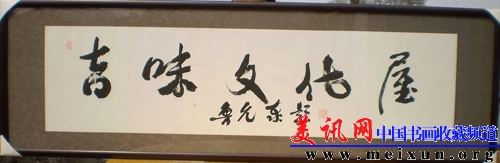 吉味文化屋
鲁允东题
美讯网 中国书画收藏频道
www.meixun.org